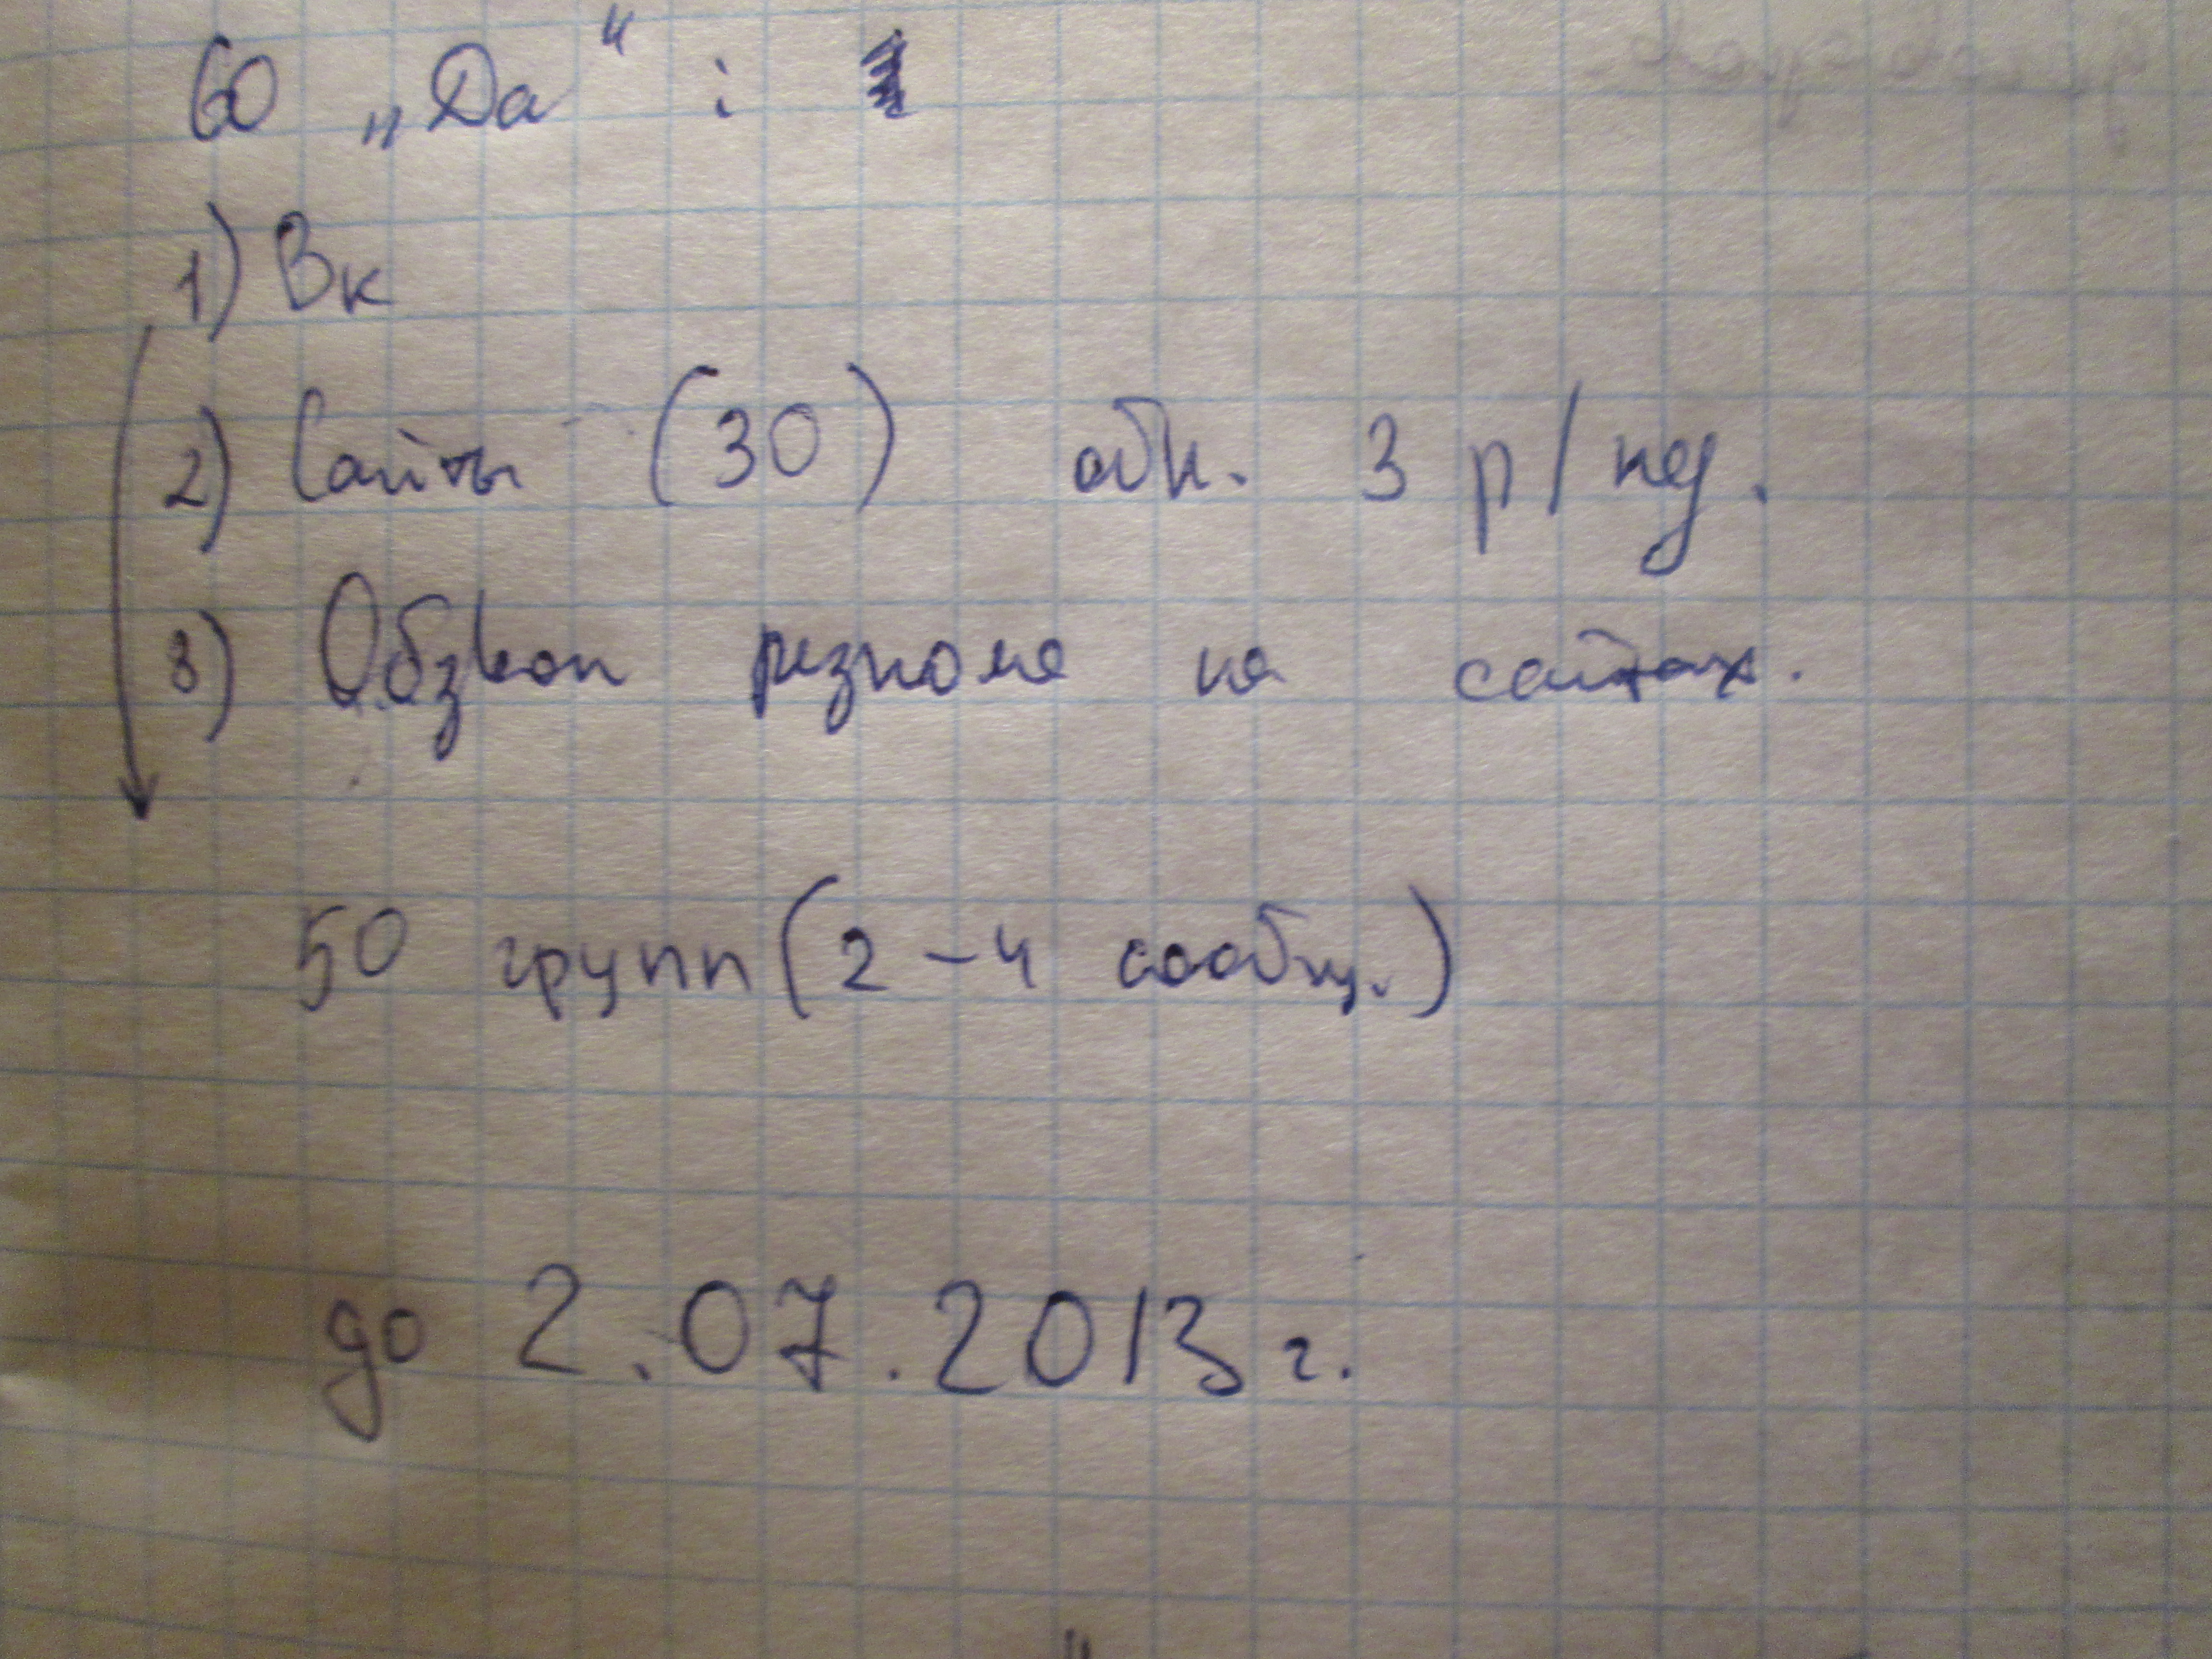 60 „Да“ :
1) Вк
2) Сайты (30) обн. 3 р/нед.
3) Обзвон резюме на сайтах.
50 групп (2-4 сообщ.)
до 2.07.2013 г.